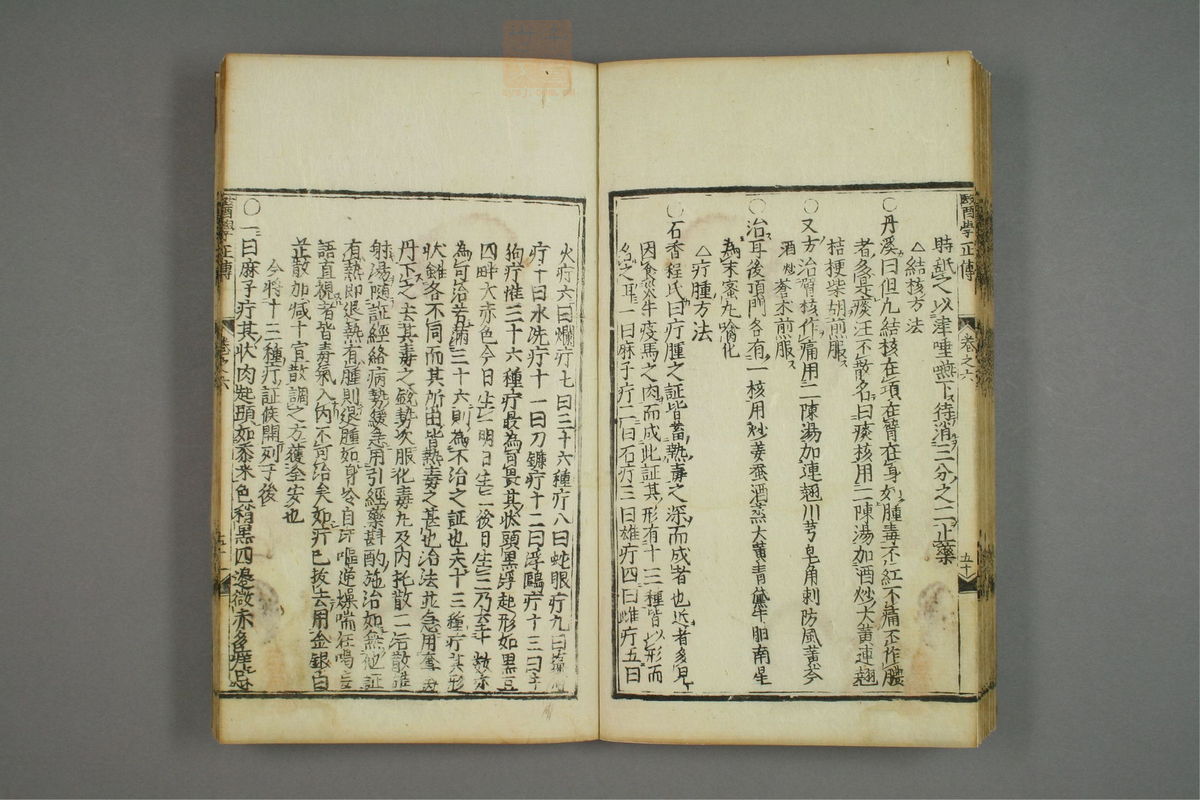 醫學正傳 卷之六 五十
時舐之以津唾嚥下待消三分之二止藥
△結核方法
○丹溪曰但凡結核在項在臂在身如腫毒不紅不痛不作膿
者多是痰汪不散名曰痰核用二陳湯加酒炒大黄連翹
桔梗柴胡煎服
○又方治臂核作痛用二陳湯加連翹川芎皂角刺防風黄芩
酒炒蒼朮煎服
○治耳後頂門各有一核用炒姜蚕酒蒸大黄青黛牛胆南星
為末蜜丸噙化
△疔腫方法
○石香程氏曰疔腫之証皆蓄熱毒之深而成者也近者多見
因食死牛疫馬之肉而成此証其形有十三種皆以形而
名之耳一曰麻子疔二曰石疔三曰雄疔四曰雌疔五曰
火疔六曰爛疔七曰三十六種疔八曰蛇眼疔九曰
疔十曰水洗疔十一曰刀鐮疔十二曰浮鷗疔十三曰
狗疔惟三十六種疔最為可畏其状頭黒浮起形如黒豆
四畔大赤色今日生一明日生二後日生三乃至十数亦
為可治若滿三十六則為不治之証也夫十三種疔其形
状雖各不同而其所由皆熱毒之甚也治法並急用奪
丹下之去其毒之鋭勢次服化毒丸及内托散二活散
射湯随証經絡病勢緩急用引經藥斟酌施治如無他証
有熱即退熱有腫則退腫如身冷自汗嘔逆燥喘狂喝妄
語直視者皆毒氣入内不可治矣如疔已拔去用金銀白
芷散加减十宣散調之方獲全安也
今将十三種疔証候開列于後
○一曰麻子疔其状肉起頭如黍米色稍黒四邊微赤多痒忌
醫學正傳 卷之六 五十